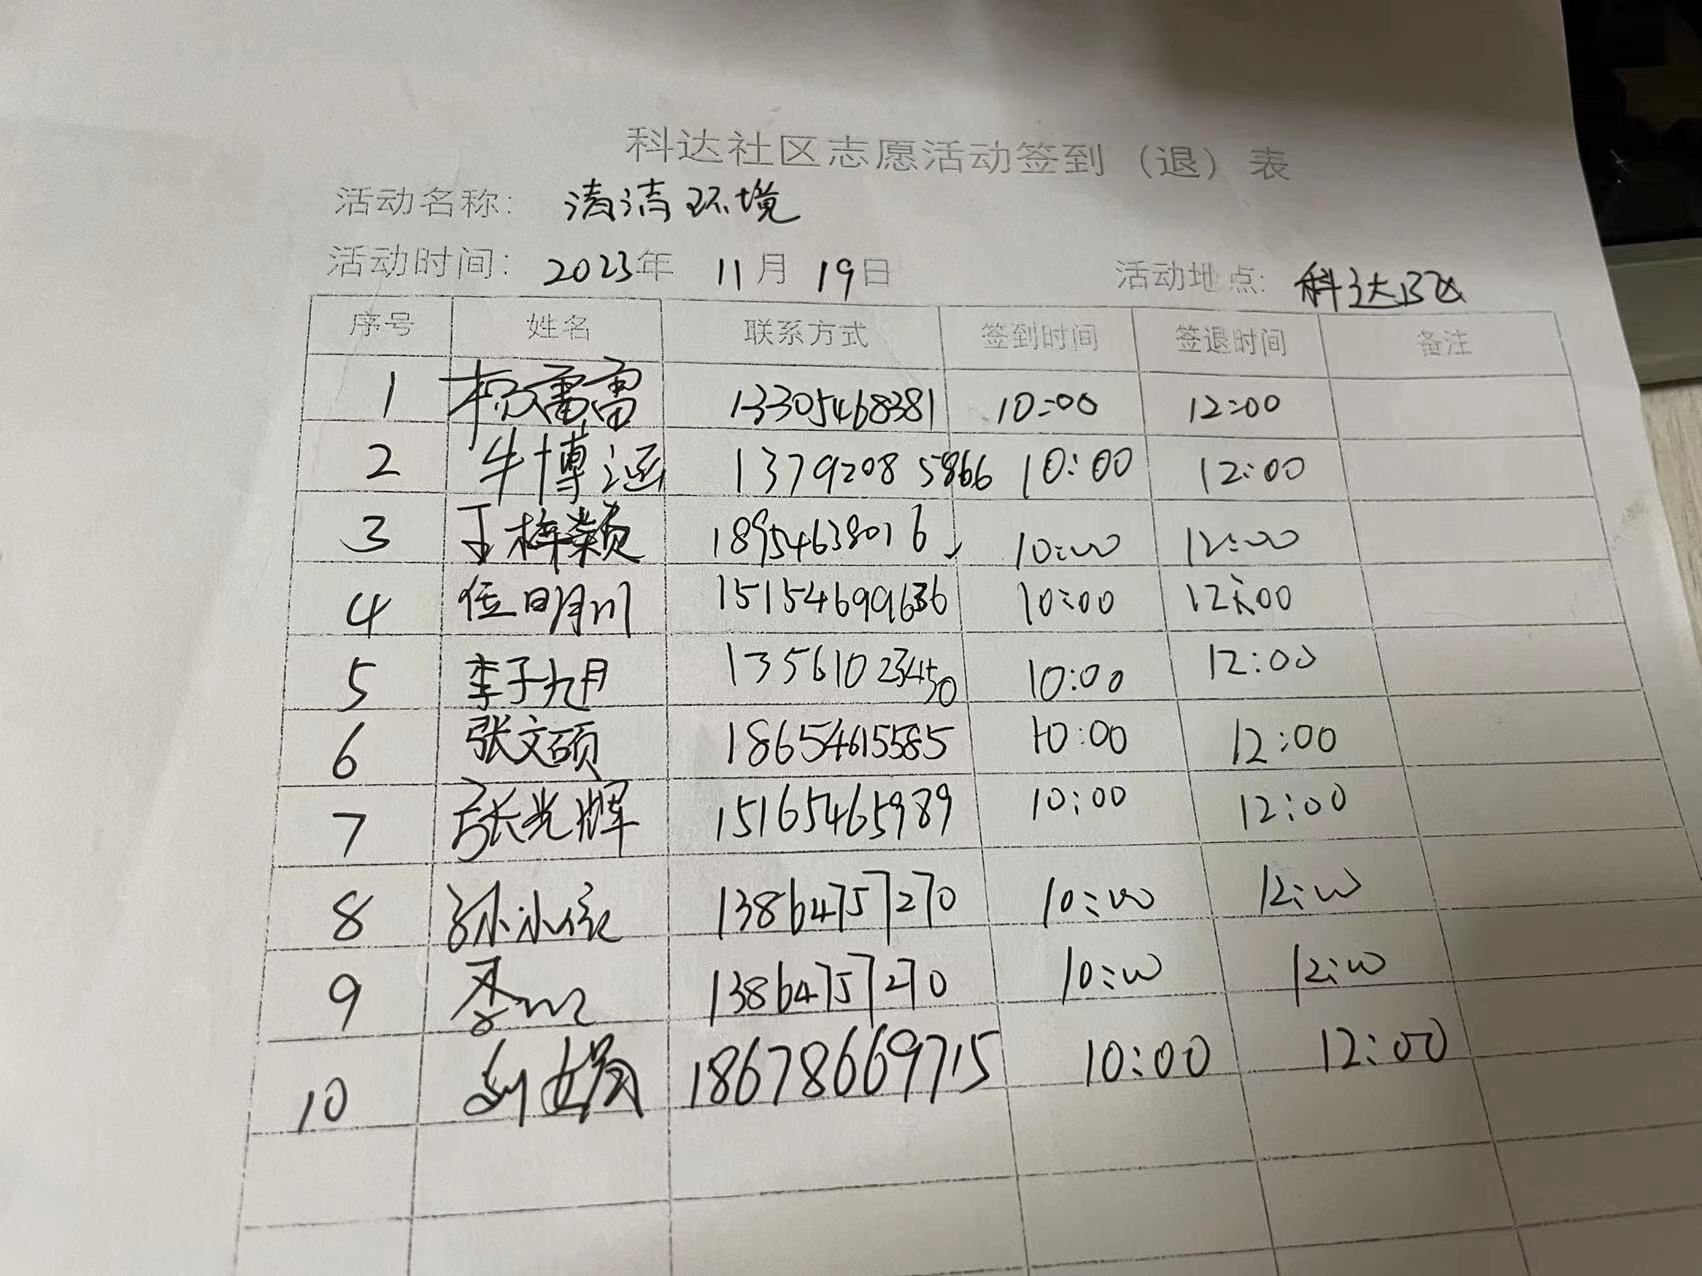 科达社区志愿活动签到（退）表
活动名称： 清洁环境
活动时间： 2023年 11月 19日 活动地点: 科达小区
序号 姓名 联系方式 签到时间 签退时间 备注
1 雷雷 13305468381 10:00 12:00
2 牛博涵 13792085866 10:00 12:00
3 王梓颖 18954638016 10:00 12:00
4 任明川 15154699636 10:00 12:00
5 李子九月 13561023450 10:00 12:00
6 张文硕 18654615585 10:00 12:00
7 张光辉 15165465989 10:00 12:00
8 孙 13864757270 10:00 12:00
9 李 13864757270 10:00 12:00
10 刘娟 18678669715 10:00 12:00